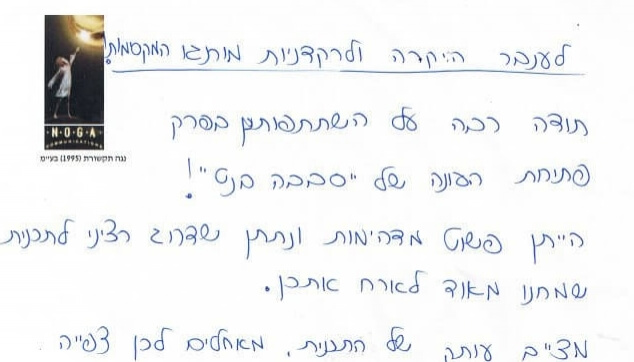 לענבר היקרה ולרקדניות מותגו המקסמות!
NOGA
COMMUNICATIONS
נגה תקשורת (1995) בע״מ
תודה רבה על השתתפותכן בפרק
פתיחת העונה של "סבבה בנט"!
הייתן פשוט מדהימות ונתתן שדרוג רציני לתכנית
שמחנו מאוד לארח אתכן.
מצ״ב עותק של התכנית, מאחלים לכן צפייה